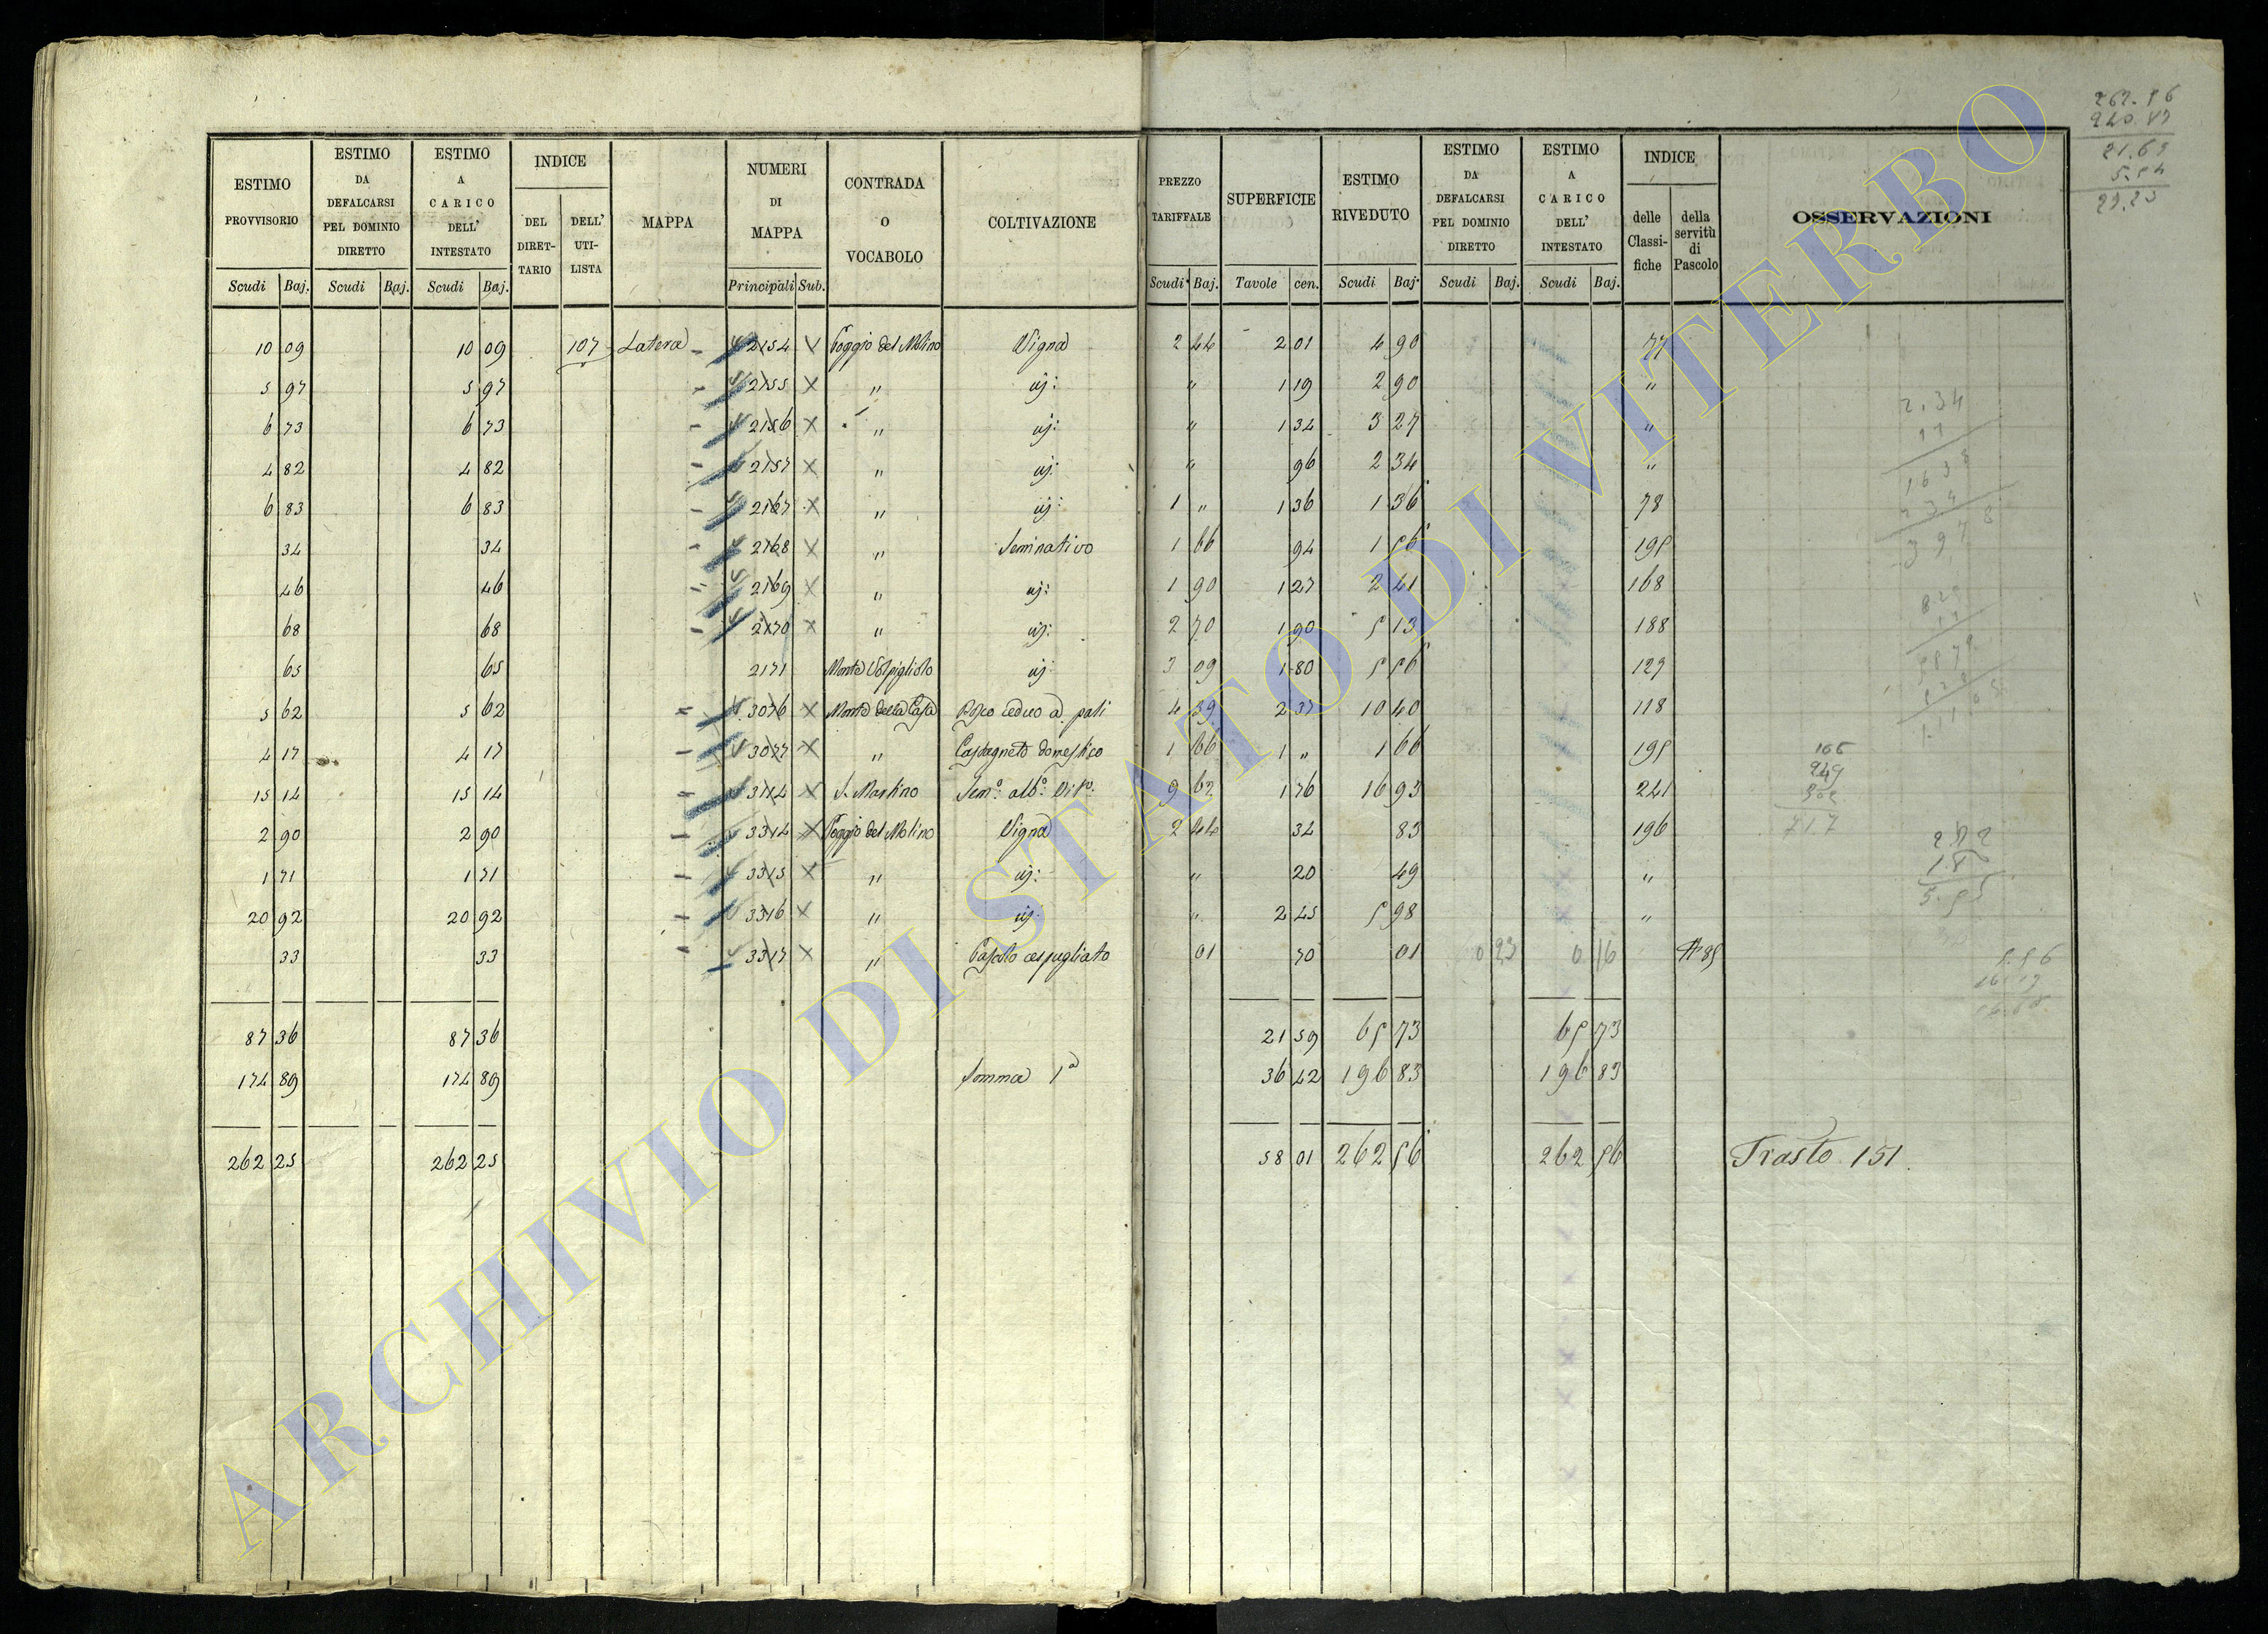 ESTIMO PROVVISORIO | ESTIMO DA DEFALCARSI PEL DOMINIO DIRETTO | ESTIMO A CARICO DELL' INTESTATO | INDICE | MAPPA | NUMERI DI MAPPA | CONTRADA O VOCABOLO | COLTIVAZIONE | PREZZO TARIFFALE | SUPERFICIE | ESTIMO RIVEDUTO | ESTIMO DA DEFALCARSI PEL DOMINIO DIRETTO | ESTIMO A CARICO DELL' INTESTATO | INDICE | OSSERVAZIONI
DEL DIRET-TARIO | DELL' UTI-LISTA | delle Classi-fiche | della servitù di Pascolo
Scudi Baj. | Scudi Baj. | Scudi Baj. | Principali Sub. | Scudi Baj. | Tavole cen. | Scudi Baj. | Scudi Baj. | Scudi Baj.
10 09 | 10 09 | 107 | Latera | 2154 | Poggio del Molino | Vigna | 2 44 | 2 01 | 4 90 | 77
5 97 | 5 97 | 2155 | " | id: | " | 1 19 | 2 90 | "
6 73 | 6 73 | 2156 | " | id: | " | 1 34 | 3 27 | "
4 82 | 4 82 | 2157 | " | id: | " | 96 | 2 34 | "
6 83 | 6 83 | 2167 | " | id: | 1 " | 1 36 | 1 36 | 78
34 | 34 | 2168 | " | Seminativo | 1 66 | 94 | 1 56 | 195
46 | 46 | 2169 | " | id: | 1 90 | 1 27 | 2 41 | 168
68 | 68 | 2170 | " | id: | 2 70 | 1 90 | 5 13 | 188
65 | 65 | 2171 | Monte Volpigliolo | id: | 3 09 | 1 80 | 5 56 | 127
5 62 | 5 62 | 3076 | Monte della Casa | Bosco ceduo a pali | 4 39 | 2 37 | 10 40 | 118
4 17 | 4 17 | 3077 | " | Castagneto domestico | 1 66 | 1 " | 1 66 | 195
15 14 | 15 14 | 3114 | S. Martino | Sem.o alb.o Vit.o | 9 62 | 1 76 | 16 93 | 241
2 90 | 2 90 | 3314 | Poggio del Molino | Vigna | 2 44 | 34 | 83 | 196
1 71 | 1 71 | 3315 | " | id: | " | 20 | 49 | "
20 92 | 20 92 | 3316 | " | id: | " | 2 45 | 5 98 | "
33 | 33 | 3317 | " | Pascolo cespugliato | 01 | 70 | 01 | 0 16
87 36 | 87 36 | 21 59 | 65 73 | 65 73
174 89 | 174 89 | Somma 1a | 36 42 | 196 83 | 196 83
262 25 | 262 25 | 58 01 | 262 56 | 262 56 | Trasto 151
2.34
ARCHIVIO DI STATO DI VITERBO